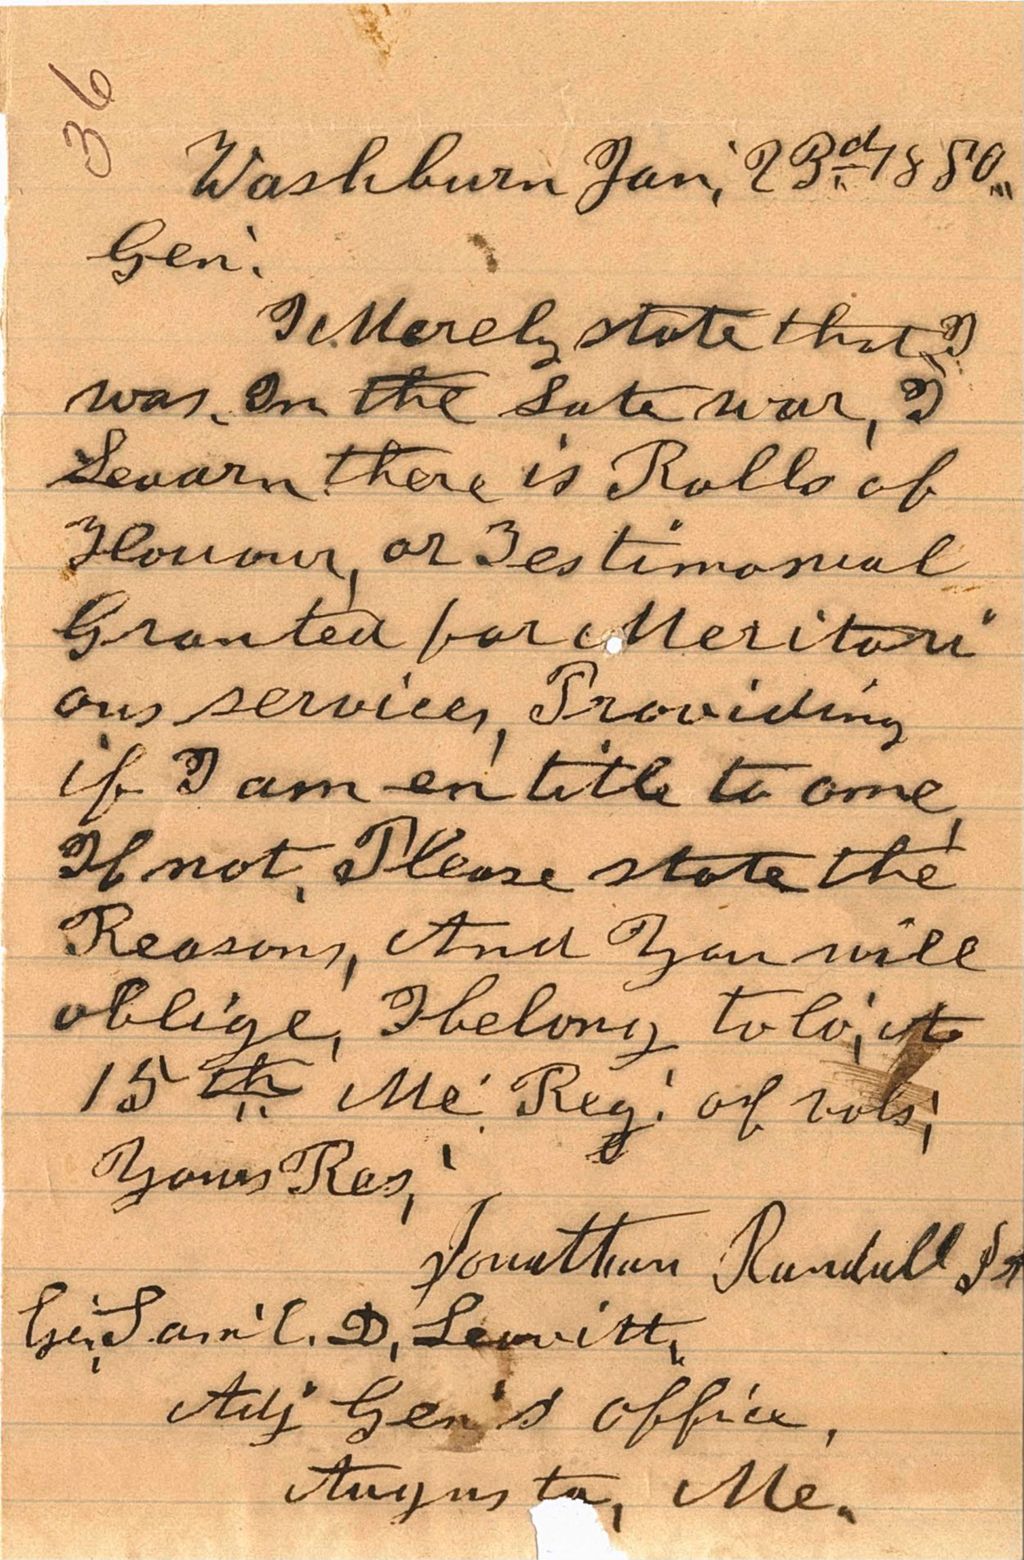 36
Washburn Jan, 23rd 1880
Gen'.
I Merely state that I
was, In the Late war, I
Learn there is Rolls of
Honour, or Testimonial
Granted for Meritori
ous services, Providing
if I am en title to one,
If not, Please state the
Reasons, And You will
oblige, I belong to Co, A
15th Me Reg. of vols,
Yours Res,
Jonathan Randall Sr
Gen. Sam'l. D. Leavitt,
Adj Gen's office,
Augusta, Me.